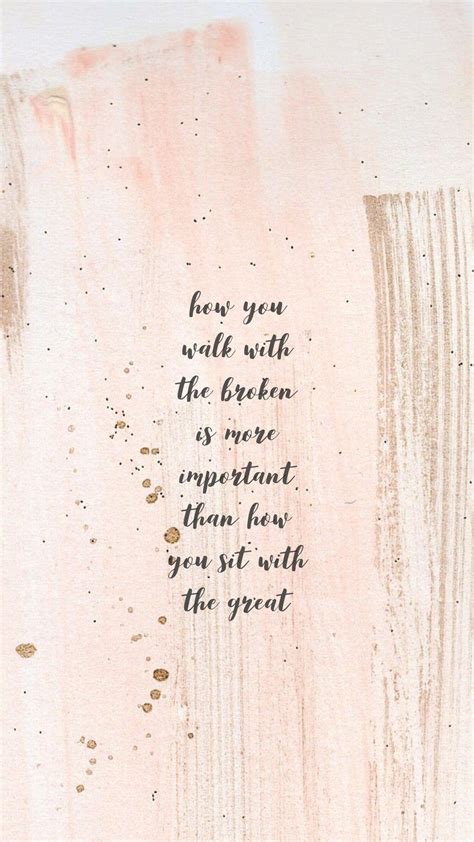 how you
walk with
the broken
is more
important
than how
you sit with
the great